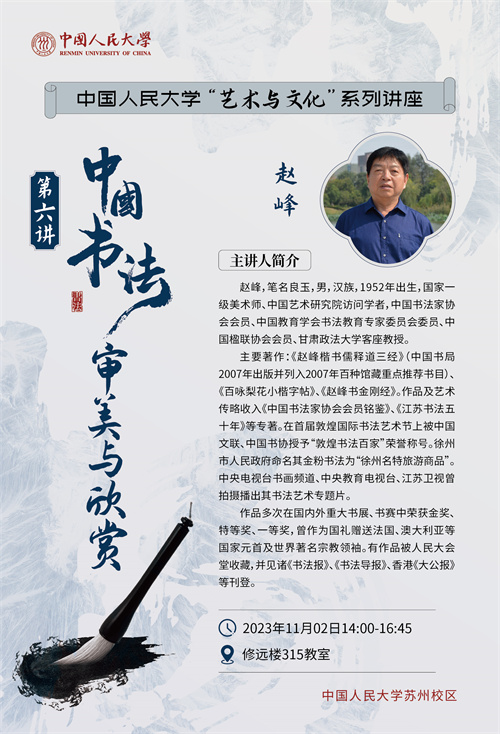 中国人民大学
RENMIN UNIVERSITY OF CHINA
中国人民大学“艺术与文化”系列讲座
第六讲
中國书法
审美与欣赏
赵峰
主讲人简介
赵峰，笔名良玉，男，汉族，1952年出生，国家一
级美术师、中国艺术研究院访问学者，中国书法家协
会会员、中国教育学会书法教育专家委员会委员、中
国楹联协会会员、甘肃政法大学客座教授。
主要著作：《赵峰楷书儒释道三经》（中国书局
2007年出版并列入2007年百种馆藏重点推荐书目）、
《百咏梨花小楷字帖》、《赵峰书金刚经》。作品及艺术
传略收入《中国书法家协会会员铭鉴》、《江苏书法五
十年》等专著。在首届敦煌国际书法艺术节上被中国
文联、中国书协授予“敦煌书法百家”荣誉称号。徐州
市人民政府命名其金粉书法为“徐州名特旅游商品”。
中央电视台书画频道、中央教育电视台、江苏卫视曾
拍摄播出其书法艺术专题片。
作品多次在国内外重大书展、书赛中荣获金奖、
特等奖、一等奖，曾作为国礼赠送法国、澳大利亚等
国家元首及世界著名宗教领袖。有作品被人民大会
堂收藏，并见诸《书法报》、《书法导报》、香港《大公报》
等刊登。
2023年11月02日14:00-16:45
修远楼315教室
中国人民大学苏州校区